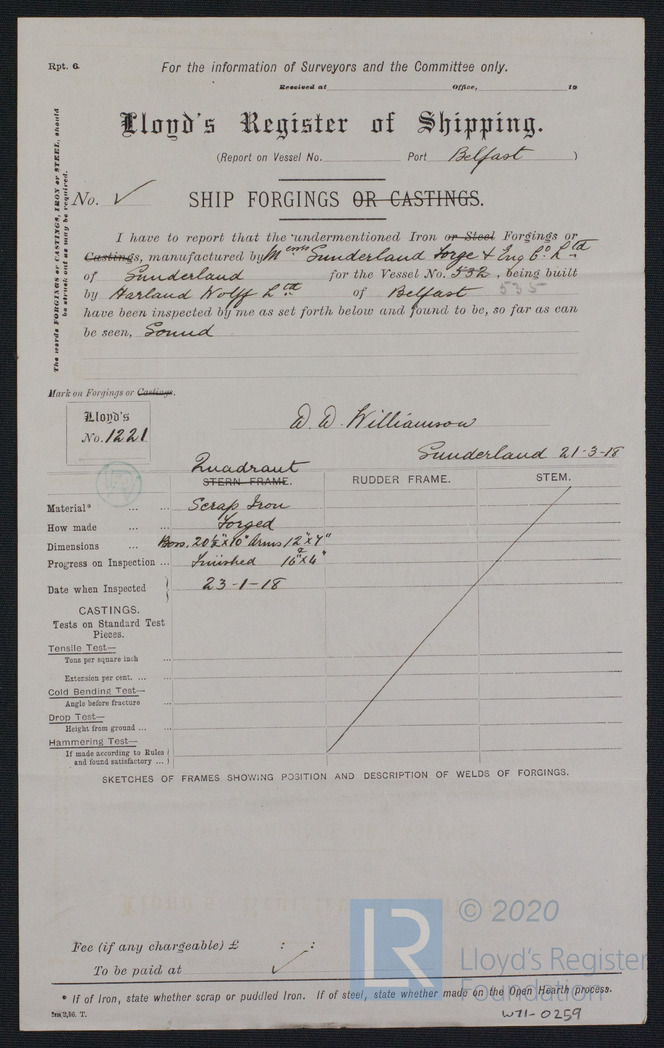 Rpt. 6.
For the information of Surveyors and the Committee only.
Received at Office, 19
Lloyd's Register of Shipping.
(Report on Vessel No. Port Belfast )
No. ✓ SHIP FORGINGS OR CASTINGS.
The words FORGINGS or CASTINGS, IRON or STEEL, should
be struck out as may be required.
I have to report that the undermentioned Iron or Steel Forgings or
Castings, manufactured by Messrs Sunderland Forge & Eng Co. Ltd
of Sunderland for the Vessel No. 532, being built
by Harland Wolff Ltd of Belfast 535
have been inspected by me as set forth below and found to be, so far as can
be seen, Sound
Mark on Forgings or Castings.
Lloyd's
No. 1221
D. D. Williamson
Sunderland 21-3-18
Quadrant
STERN FRAME. RUDDER FRAME. STEM.
Material* ... ... Scrap Iron
How made ... ... Forged
Dimensions ... ... Boss. 20½" x 10" Arms 12" x 7"
Progress on Inspection ... Finished 16" x 4"
Date when Inspected 23-1-18
CASTINGS.
Tests on Standard Test
Pieces.
Tensile Test—
Tons per square inch ...
Extension per cent. ... ...
Cold Bending Test—
Angle before fracture ...
Drop Test—
Height from ground ... ...
Hammering Test—
If made according to Rules
and found satisfactory ...
SKETCHES OF FRAMES SHOWING POSITION AND DESCRIPTION OF WELDS OF FORGINGS.
Fee (if any chargeable) £ : :
To be paid at ✓
* If of Iron, state whether scrap or puddled Iron. If of steel, state whether made on the Open Hearth process.
LR © 2020
Lloyd's Register
Foundation
W71-0259